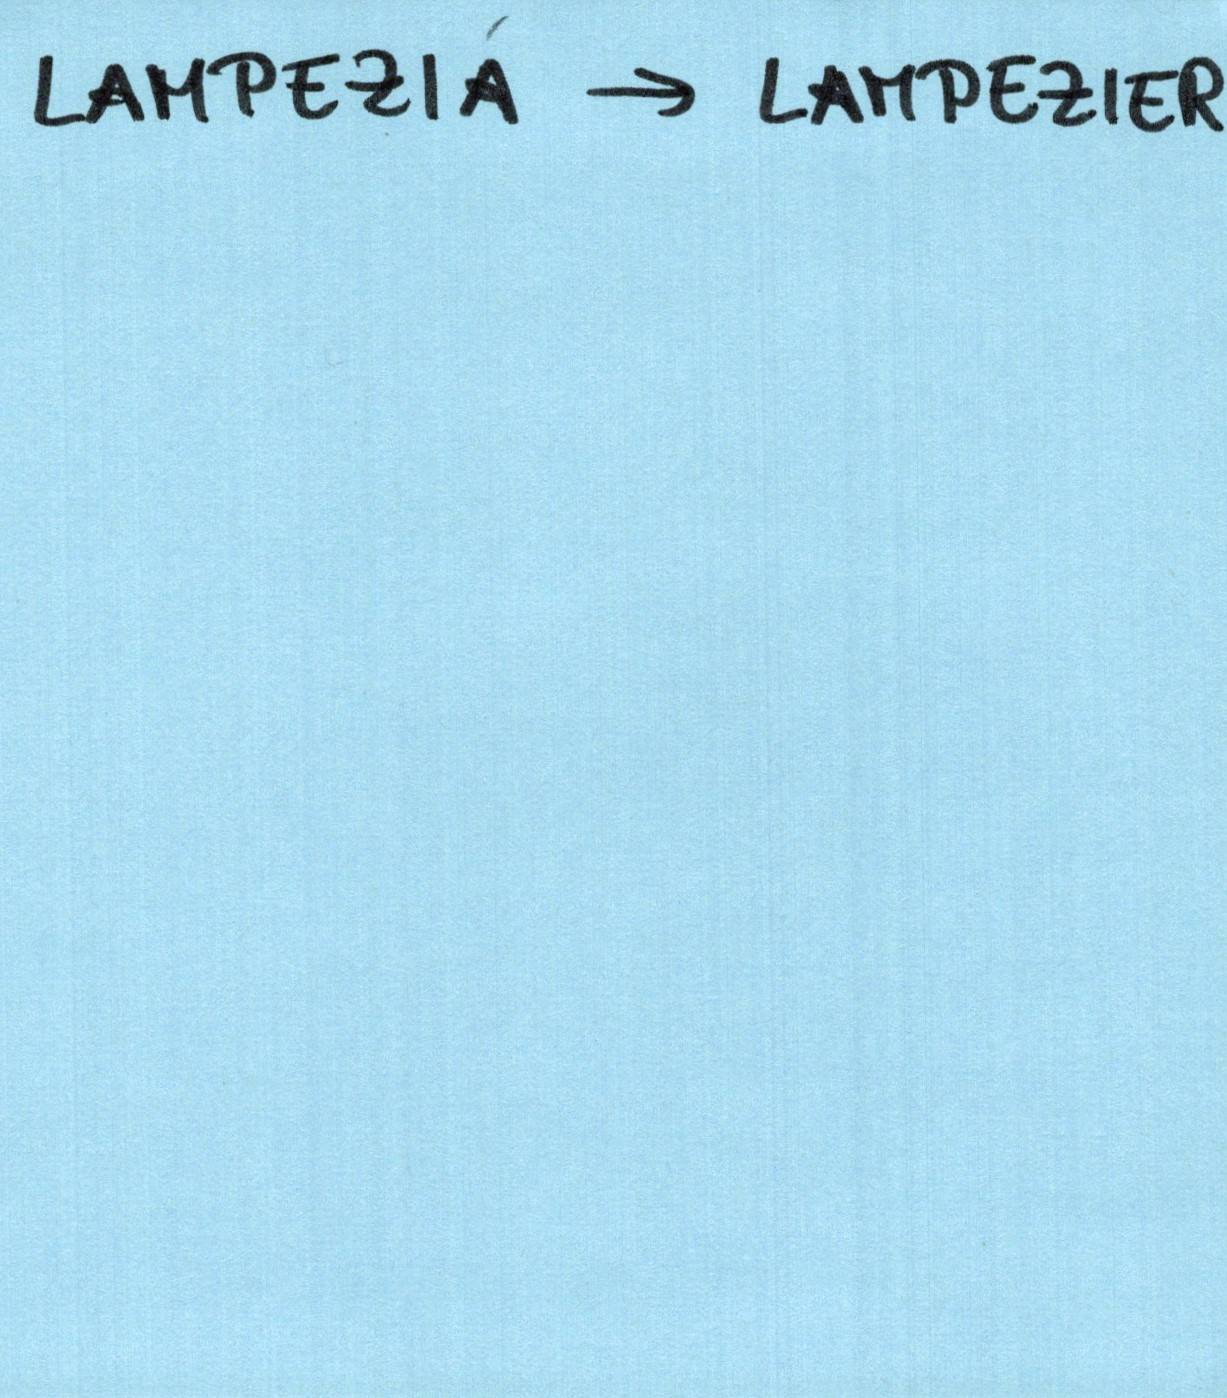 LAMPEZIÁ → LAMPEZIER